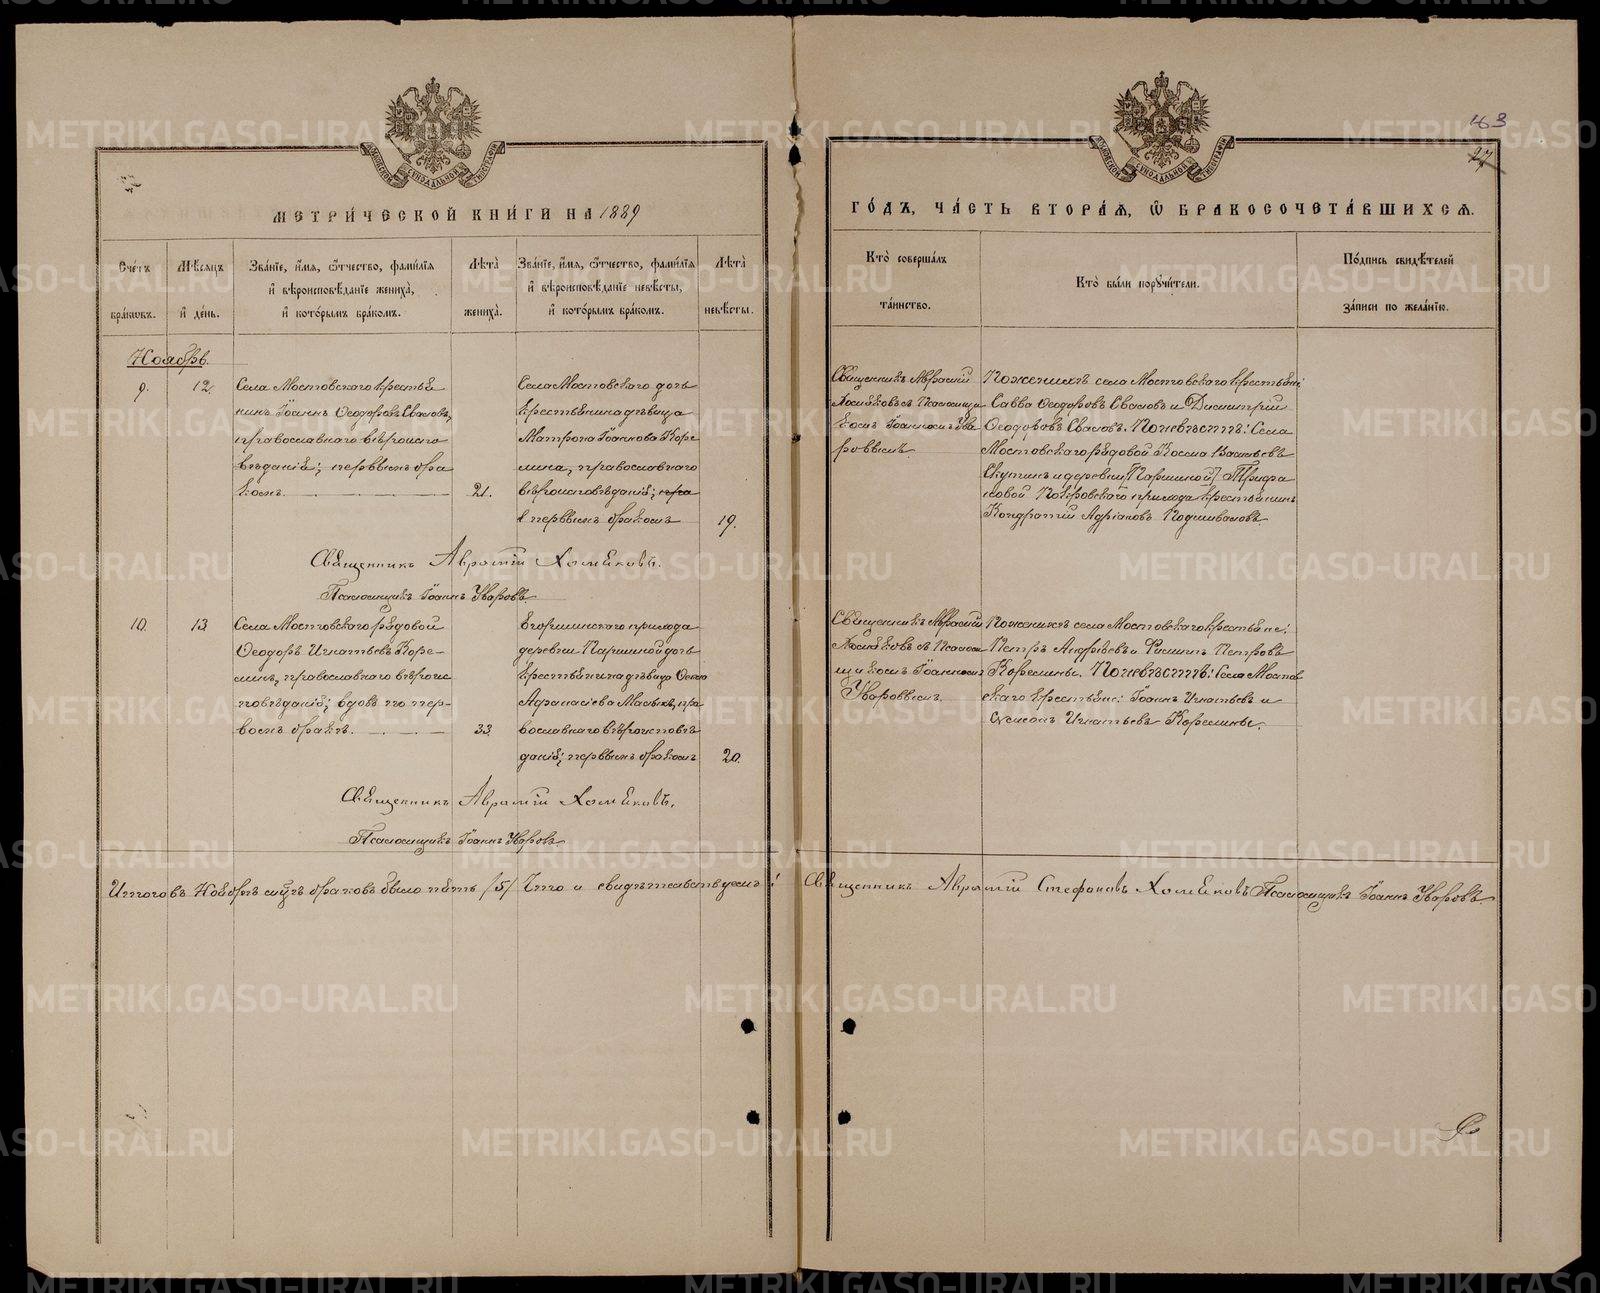 МЕТРИ́ЧЕСКОЙ КНИ́ГИ НА 1889
Сче́тъ бра́ковъ.
Мѣ́сяцъ и҆ де́нь.
Зва́нїе, и҆́мя, ѻ҆́тчество, фами́лїя и҆ вѣроисповѣ́данїе жениха̀, и҆ кото́рымъ бра́комъ.
Лѣ́та жениха̀.
Зва́нїе, и҆́мя, ѻ҆́тчество, фами́лїя и҆ вѣроисповѣ́данїе невѣ́сты, и҆ кото́рымъ бра́комъ.
Лѣ́та невѣ́сты.
Ноябрь.
9.
12.
Села Мостовскаго крестья
нинъ Іоаннъ Ѳеодоровъ Сваловъ,
православнаго вѣроиспо
вѣданія; первымъ бра
комъ.
21.
Села Мостовскаго дочь
крестьянина дѣвица
Матрона Іоаннова Коре
лина, православнаго
вѣроисповѣданія;
первымъ бракомъ
19.
Священникъ Аврамій Хомяковъ.
Псаломщикъ Іоаннъ Уваровъ.
10.
13.
Села Мостовскаго рядовой
Ѳеодоръ Игнатьевъ Коре-
линъ, православнаго вѣроис
повѣданія; вдовъ по пер-
вомъ бракѣ.
33.
Егоршинскаго прихода
деревни Паршиной дочь
крестьянина дѣвица Ѳекла
Аѳанасіева Малыхъ, пра
вославнаго вѣроисповѣ
данія; первымъ бракомъ
20.
Священникъ Аврамій Хомяковъ.
Псаломщикъ Іоаннъ Уваровъ.
Итого въ Ноябрѣ мѣсяцѣ браковъ было пять /5/ Что и свидѣтельствуемъ:
43
27
ГО́ДЪ, ЧА́СТЬ ВТОРА́Я, Ѽ БРАКОСОЧЕТА́ВШИХСЯ.
Кто̀ соверша́лъ та́инство.
Кто̀ бы́ли поручи́тели.
По́дпись свидѣ́телей за́писи по жела́нїю.
Священникъ Аврамій
Хомяковъ съ Псаломщи
комъ Іоанномъ Ува
ровымъ.
По женихѣ села Мостовскаго крестьяне:
Савва Ѳеодоровъ Сваловъ и Димитрій
Ѳеодоровъ Сваловъ. По невѣстѣ: Села
Мостовскаго рядовой Косма Васильевъ
Скутинъ и деревни /Паршиной/ Трифо
новой Покровскаго прихода крестьянинъ
Кондратій Адріановъ Подшиваловъ.
Священникъ Аврамій
Хомяковъ съ Псалом
щикомъ Іоанномъ
Уваровымъ.
По женихѣ села Мостовскаго крестьяне:
Петръ Андреевъ и Филиппъ Петровъ
Корелины. По невѣстѣ: Села Мостов
скаго крестьяне: Іоаннъ Игнатьевъ и
Симеонъ Игнатьевъ Корелины.
Священникъ Аврамій Стефановъ Хомяковъ Псаломщикъ Іоаннъ Уваровъ.
METRIKI.GASO-URAL.RU